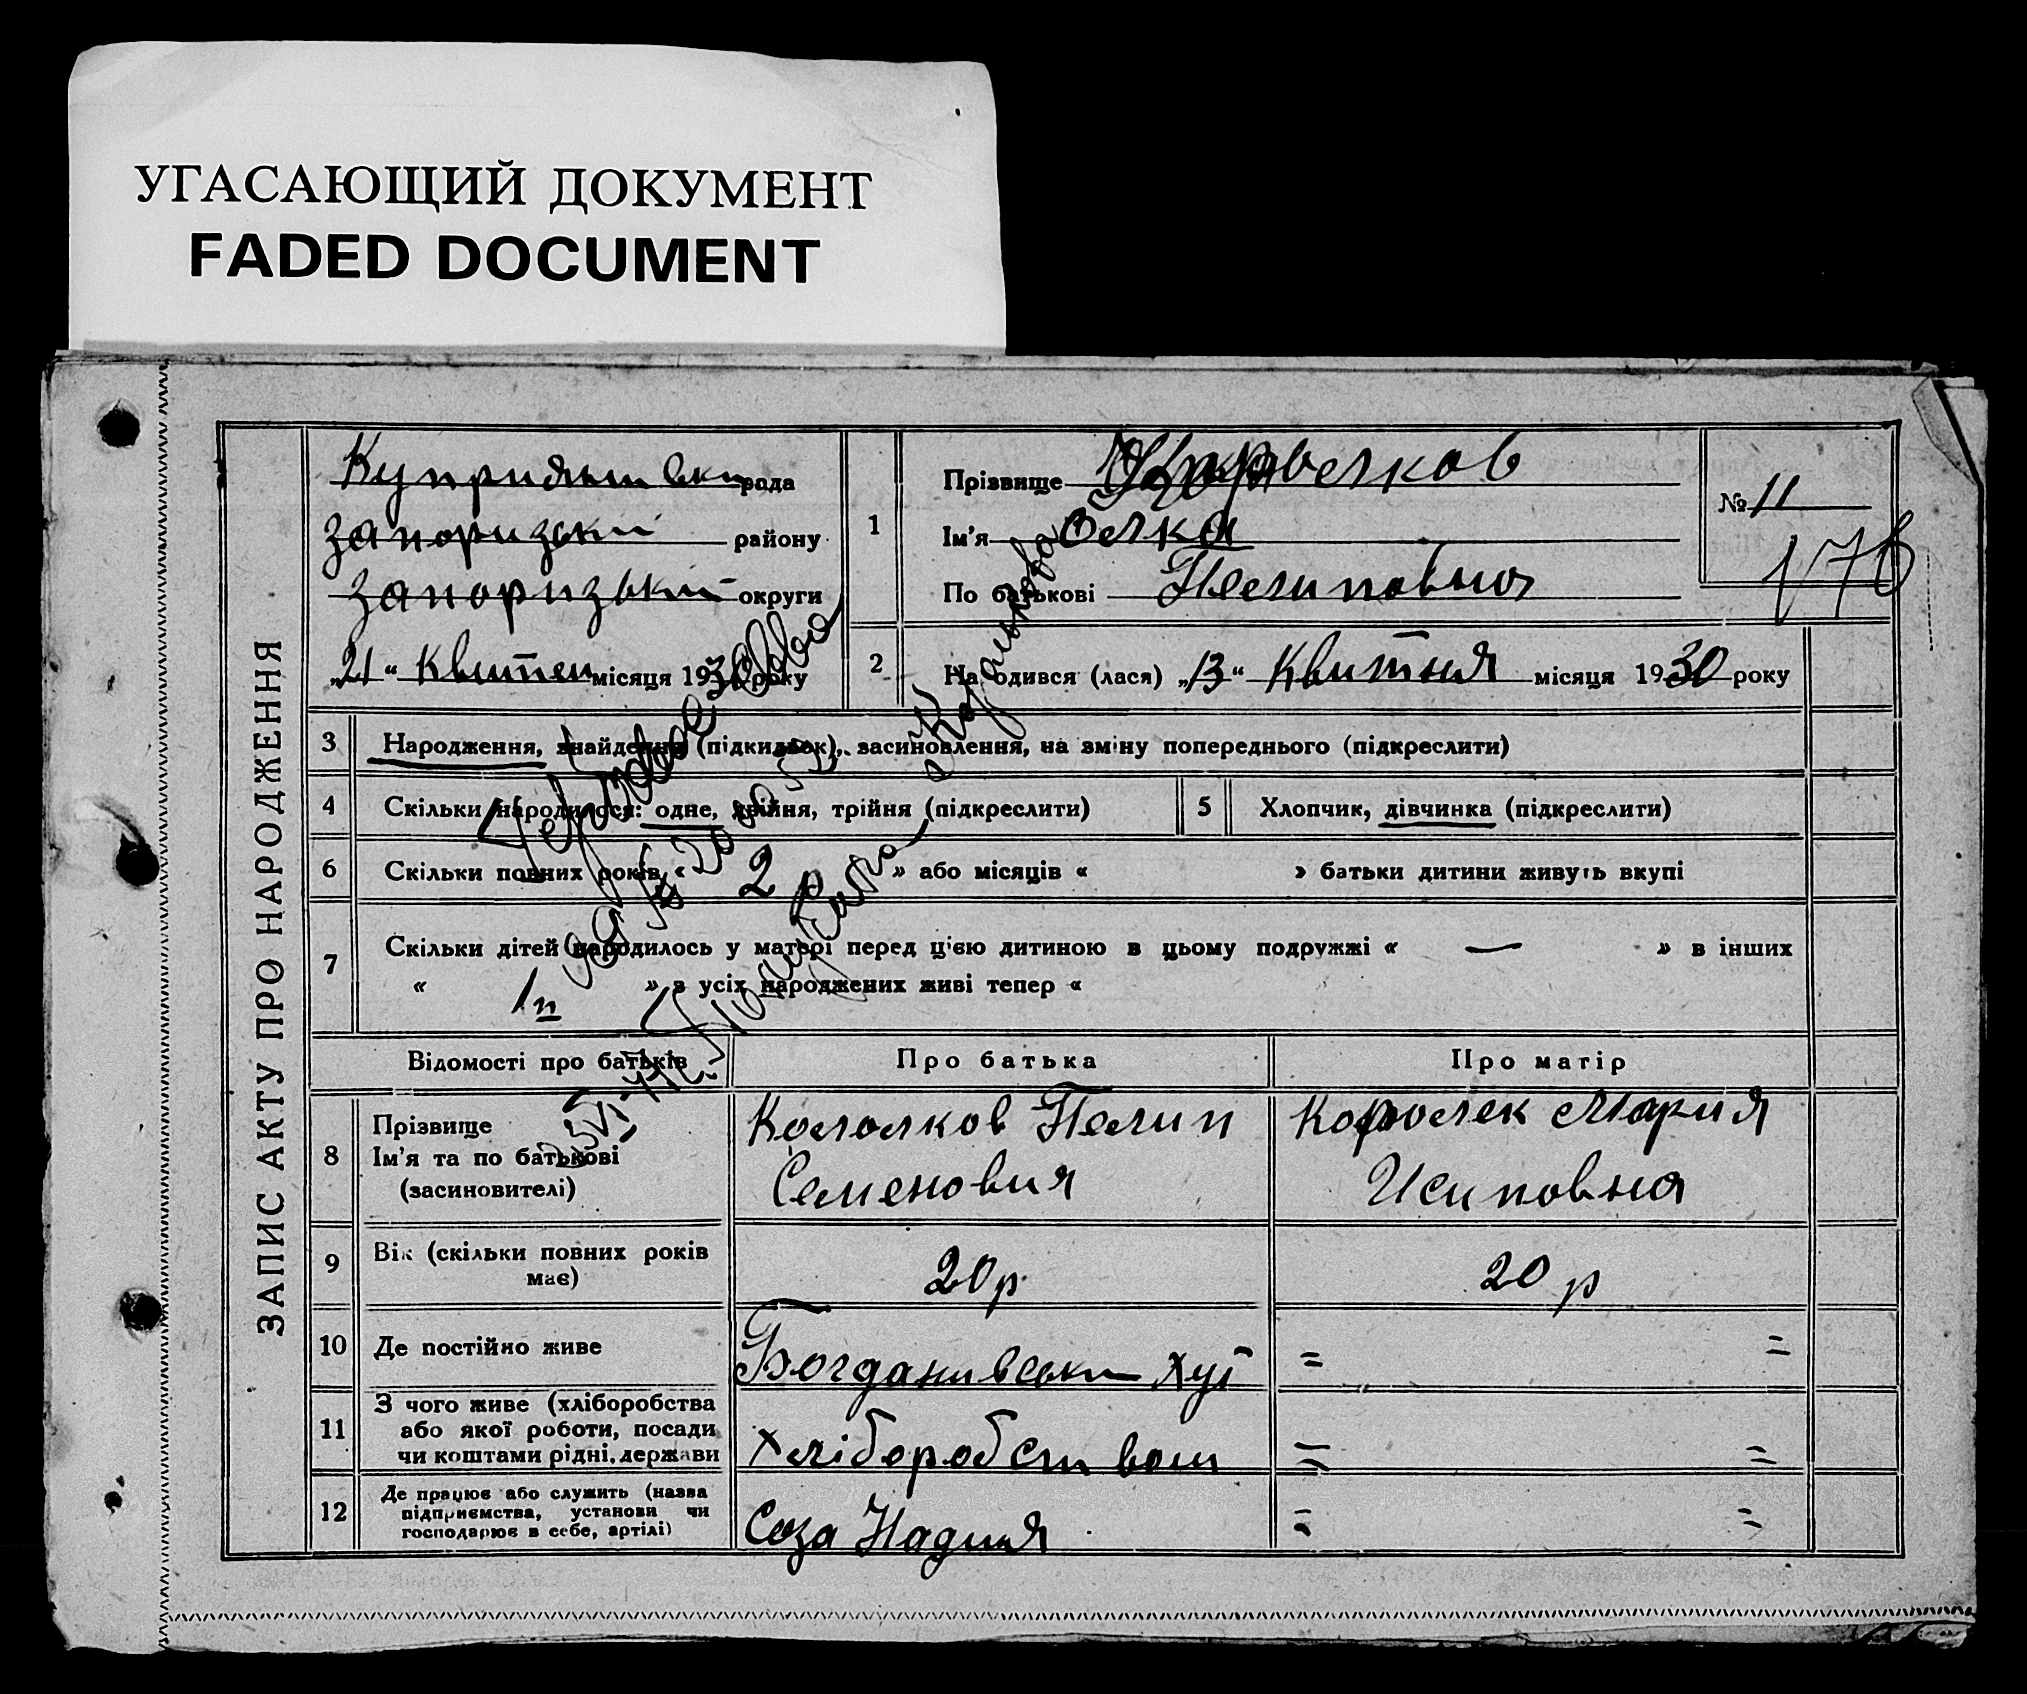 УГАСАЮЩИЙ ДОКУМЕНТ
FADED DOCUMENT
ЗАПИС АКТУ ПРО НАРОДЖЕННЯ
рада
Запоризький району
Запоризький округи
„21“ Квітен місяця 1930 року
1
Прізвище
Ім'я Олка
По батькові Пелиповна
№ 11
176
2 На одився (лася) „13“ Квитня місяця 1930 року
3 Народження, знайдення (підкидьок), засиновлення, на зміну попереднього (підкреслити)
4 Скільки народилося: одне, двійня, трійня (підкреслити)
5 Хлопчик, дівчинка (підкреслити)
6 Скільки повних років „ 2 р » або місяців « » батьки дитини живуть вкупі
7 Скільки дітей народилось у матері перед цією дитиною в цьому подружжі « — » в інших
« 1п » в усіх народжених живі тепер «
Відомості про батьків Про батька Про матір
8 Прізвище
Ім'я та по батькові
(засиновителі)
Пелип
Семенович
Мария
Исиповна
9 Вік (скільки повних років
має)
20р 20 р
10 Де постійно живе Богданивськи хут = =
11 З чого живе (хліборобства
або якої роботи, посади
чи коштами рідні, держави
Хліборобством = =
12 Де працює або служить (назва
підприємства, установи чи
господарює в себе, артілі)
Соза Надия = =